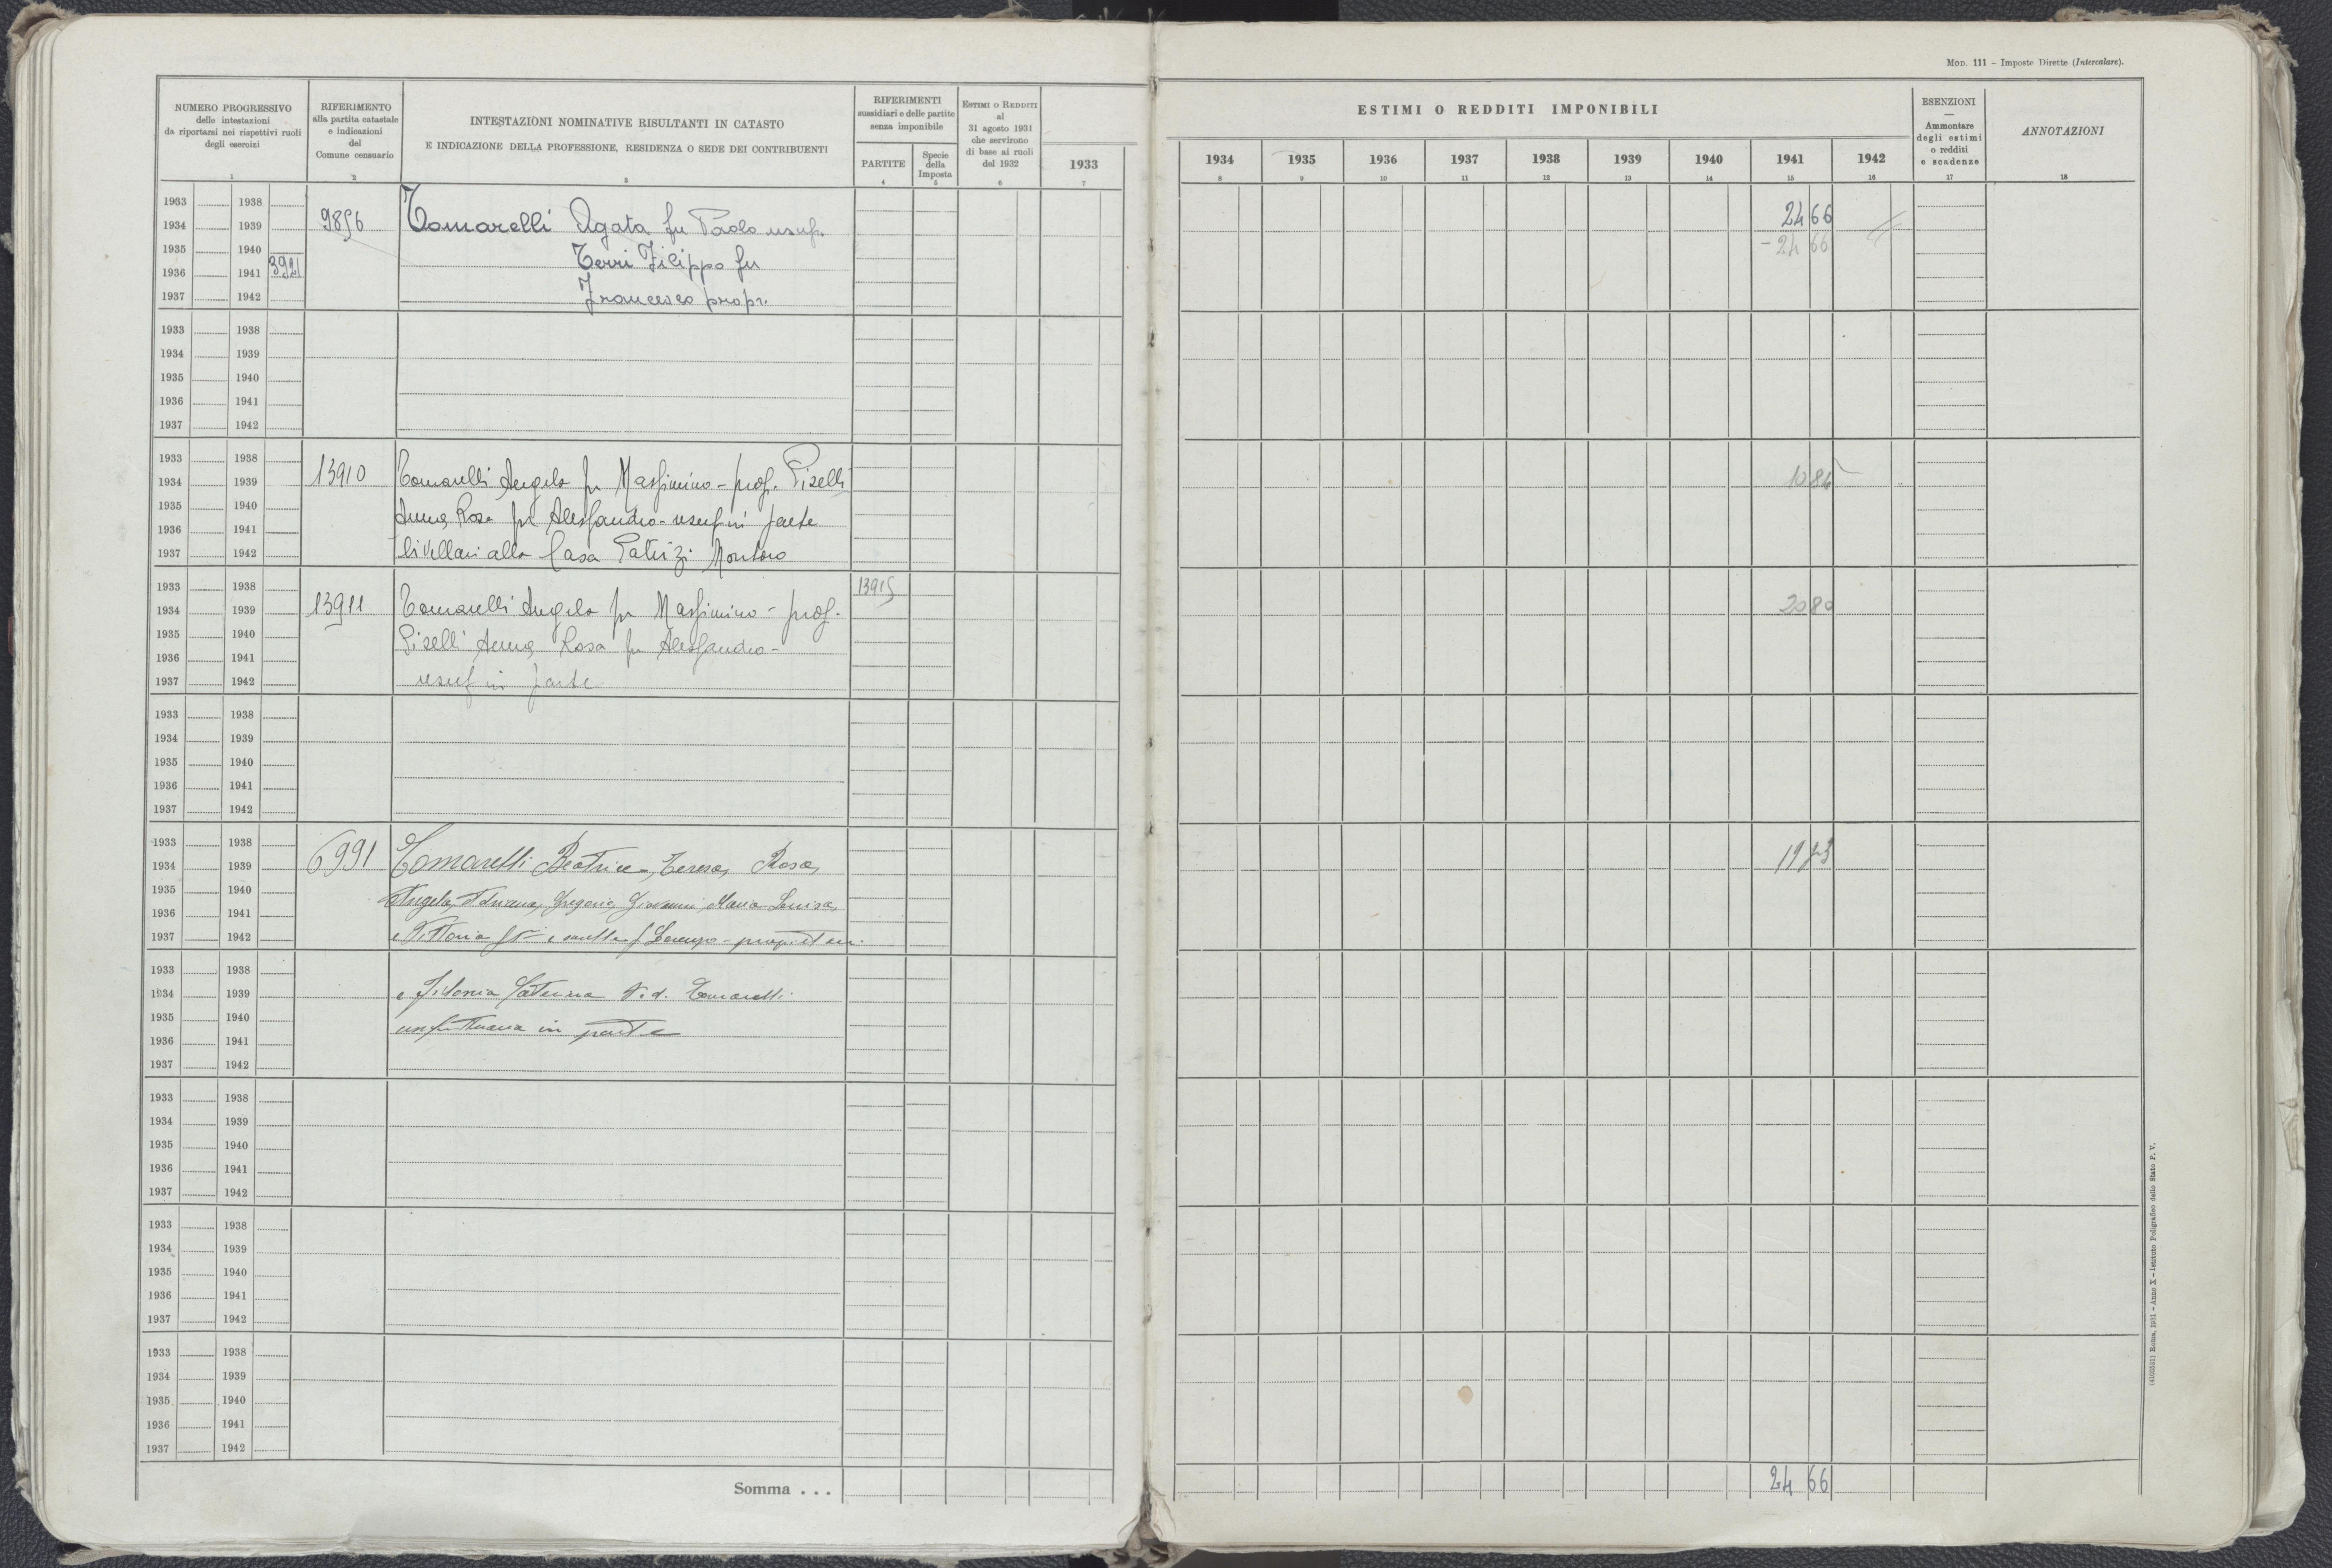 Mod. 111 – Imposte Dirette (Intercalare).
NUMERO PROGRESSIVO
delle intestazioni
da riportarsi nei rispettivi ruoli
degli esercizi
1
RIFERIMENTO
alla partita catastale
e indicazioni
del
Comune censuario
2
INTESTAZIONI NOMINATIVE RISULTANTI IN CATASTO
E INDICAZIONE DELLA PROFESSIONE, RESIDENZA O SEDE DEI CONTRIBUENTI
3
RIFERIMENTI
sussidiari e delle partite
senza imponibile
PARTITE
4
Specie
della
Imposta
5
Estimi o Redditi
al
31 agosto 1931
che servirono
di base ai ruoli
del 1932
6
1933
7
ESTIMI O REDDITI IMPONIBILI
1934 1935 1936 1937 1938 1939 1940 1941 1942
8 9 10 11 12 13 14 15 16
ESENZIONI
—
Ammontare
degli estimi
o redditi
e scadenze
17
ANNOTAZIONI
18
1933 1938
1934 1939 9856 Tomarelli Agata fu Paolo usufr. 24 66
1935 1940 Terri Filippo fu - 24 66
1936 1941 3921
1937 1942 Francesco propr.
1933 1938
1934 1939
1935 1940
1936 1941
1937 1942
1933 1938
1934 1939 13910 Tomarelli Angelo fu Massimino - prop. Piselli 10 86
1935 1940 Anna Rosa fu Alessandro - usuf in parte
1936 1941
1937 1942 livellari alla Casa Patrizi Montoro
1933 1938 13915
1934 1939 13911 Tomarelli Angelo fu Massimino - prop. 20 80
1935 1940 Piselli Anna Rosa fu Alessandro -
1936 1941
1937 1942 usuf in parte
1933 1938
1934 1939
1935 1940
1936 1941
1937 1942
1933 1938
1934 1939 6991 Tomarelli Beatrice, Teresa, Rosa,
1935 1940 Angela, Gregorio, Giovanni, Maria Luisa,
1936 1941
1937 1942 e Vittoria f.lli e sorelle f Lorenzo - propriet
1933 1938
1934 1939 e Caterina Ved. Tomarelli
1935 1940 usufruttuaria in parte
1936 1941
1937 1942
1933 1938
1934 1939
1935 1940
1936 1941
1937 1942
1933 1938
1934 1939
1935 1940
1936 1941
1937 1942
1933 1938
1934 1939
1935 1940
1936 1941
1937 1942
Somma . . . 24 66
(4103551) Roma, 1931 - Anno X - Istituto Poligrafico dello Stato P. V.